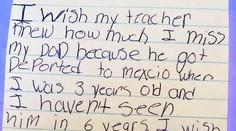 I wish my teacher
knew how much I miss
my DaD because he got
DePorted to mexcio when
I was 3 years old and
I haven't seen
him in 6 years I wish